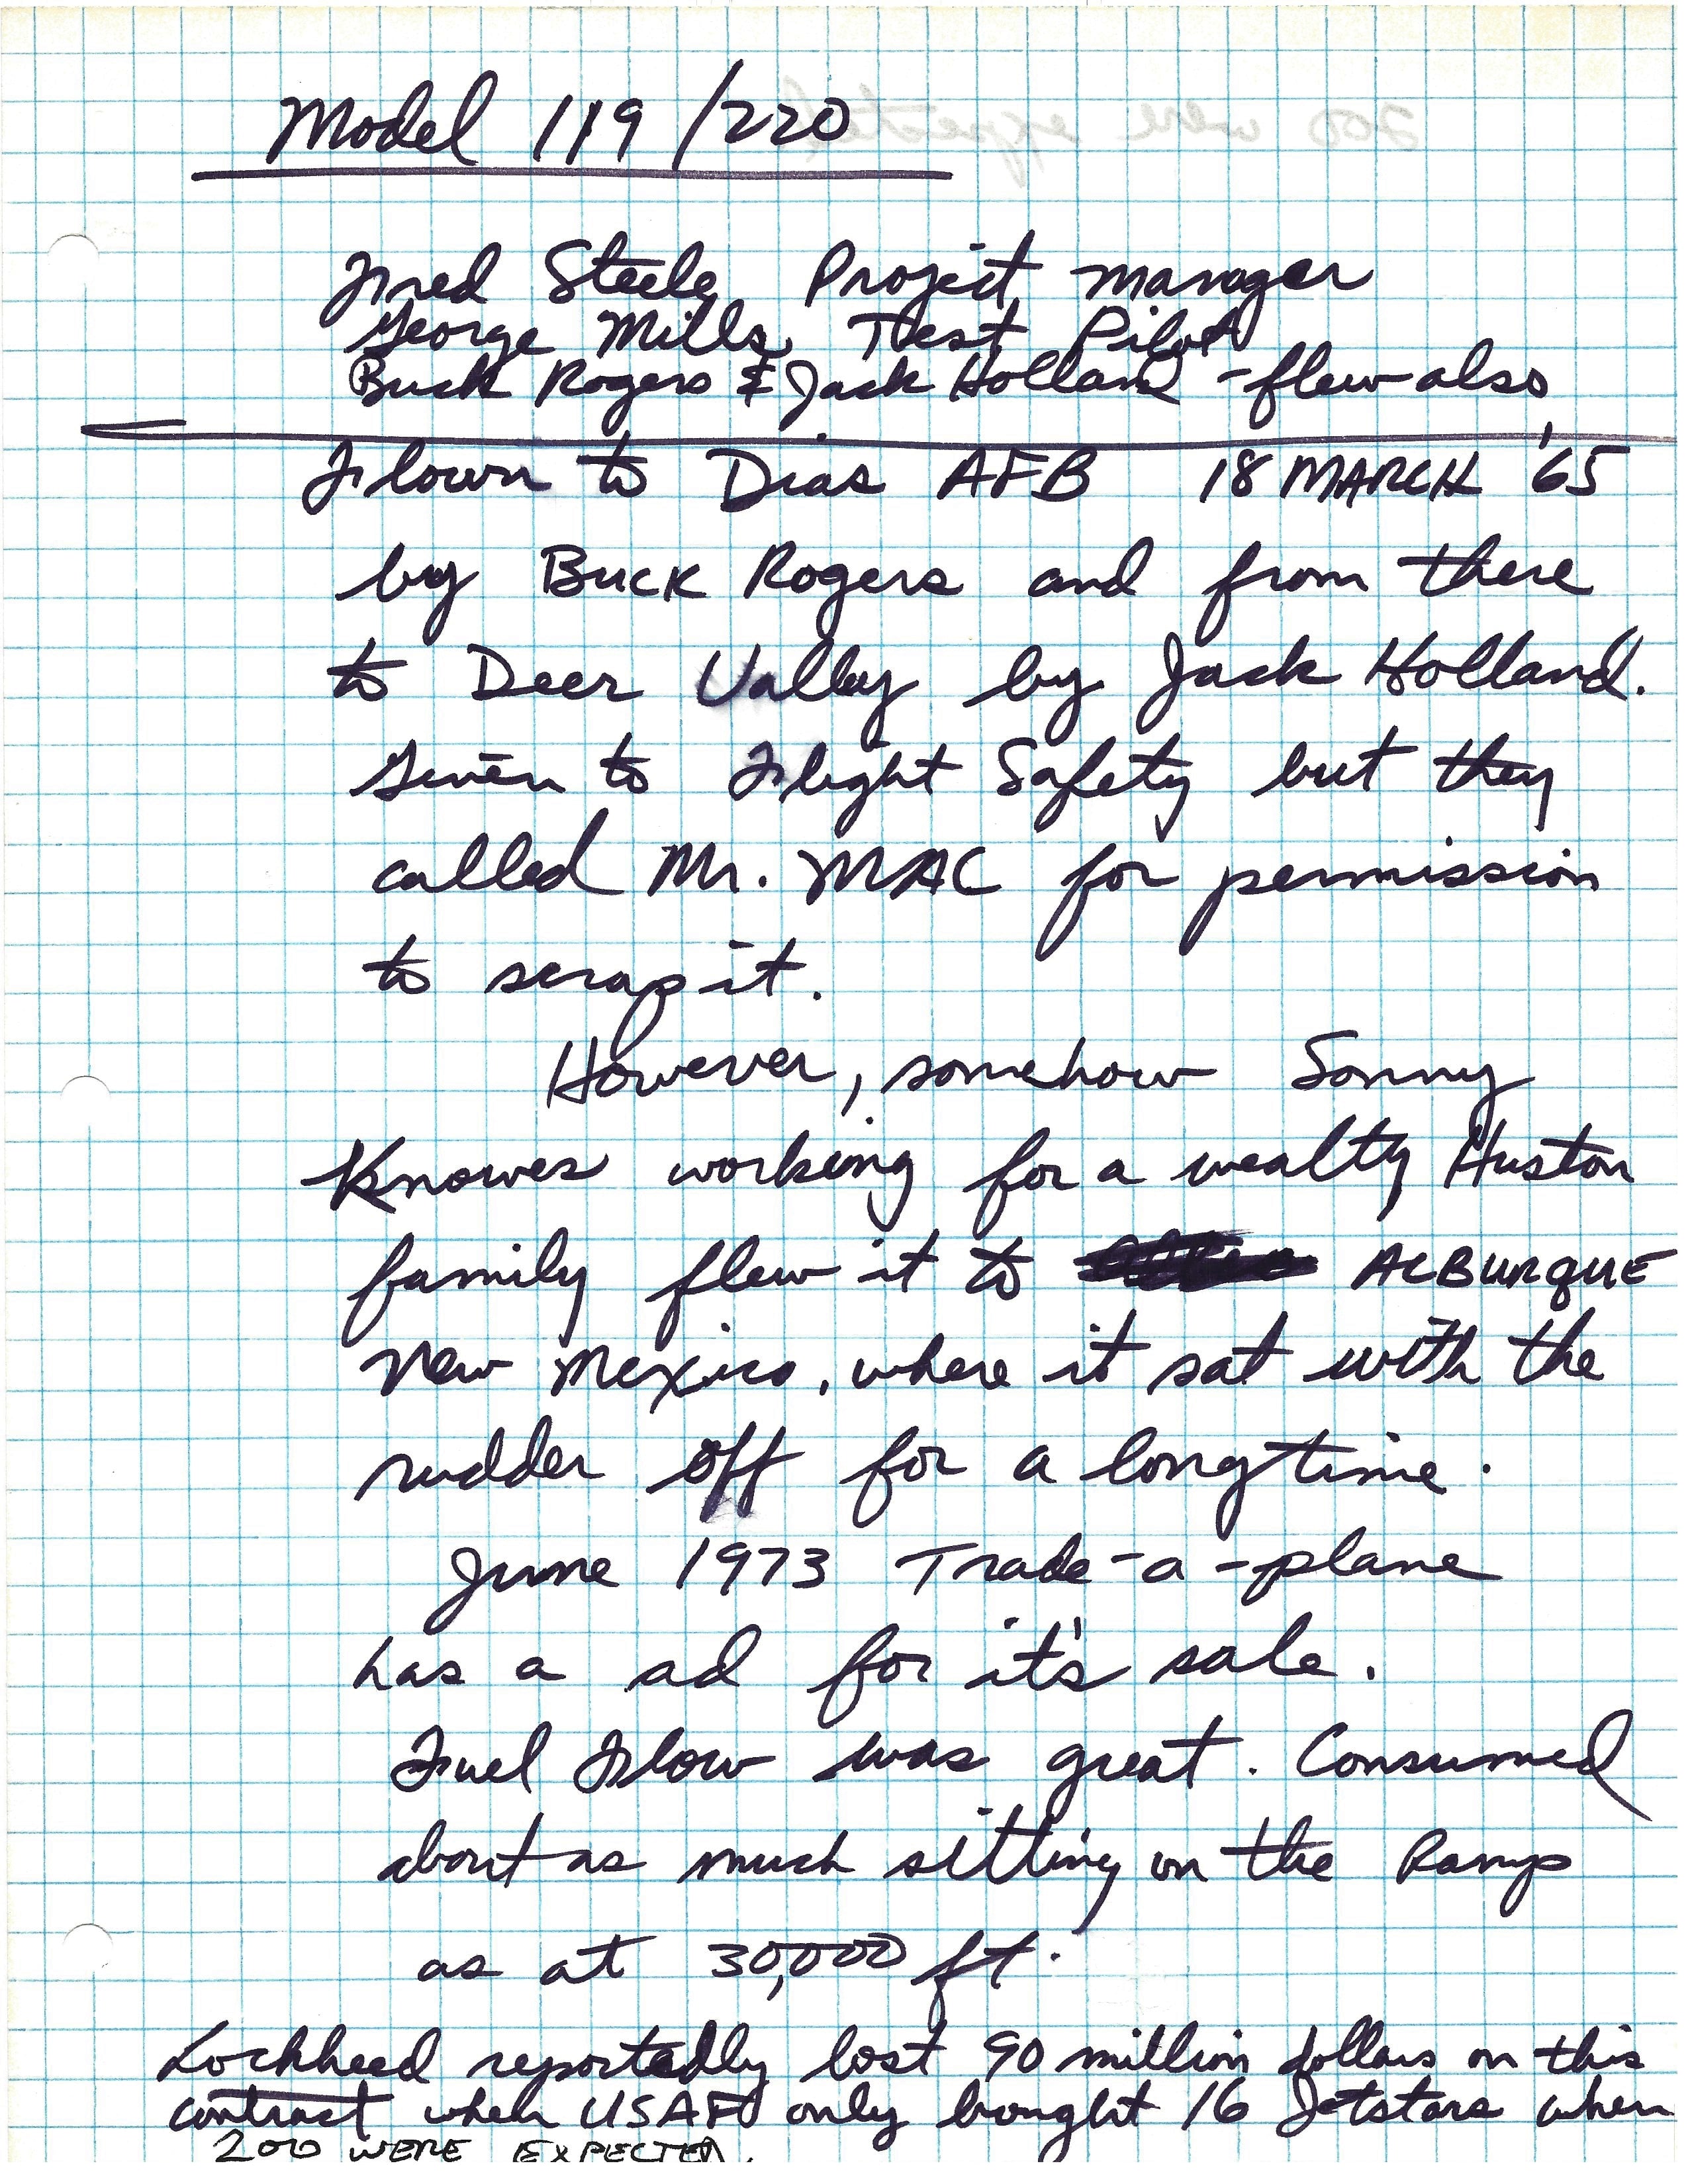 Model 119/220
Fred Steele, Project Manager
George Mills, Test Pilot
Buck Rogers & Jack Holland - flew also
Flown to Dias AFB 18 MARCH '65
by BUCK Rogers and from there
to Deer Valley by Jack Holland.
Given to Flight Safety but they
called Mr. MAC for permission
to scrap it.
However, somehow Sonny
Knowes working for a wealty Huston
family flew it to ALBURQUE
New Mexico, where it sat with the
rudder off for a long time.
June 1973 Trade-a-plane
has a ad for it's sale.
Fuel Flow was great. Consumed
about as much sitting on the Ramp
as at 30,000 ft.
Lockheed reportedly lost 90 million dollars on this
contract when USAF only bought 16 Jetstars when
200 WERE EXPECTED.